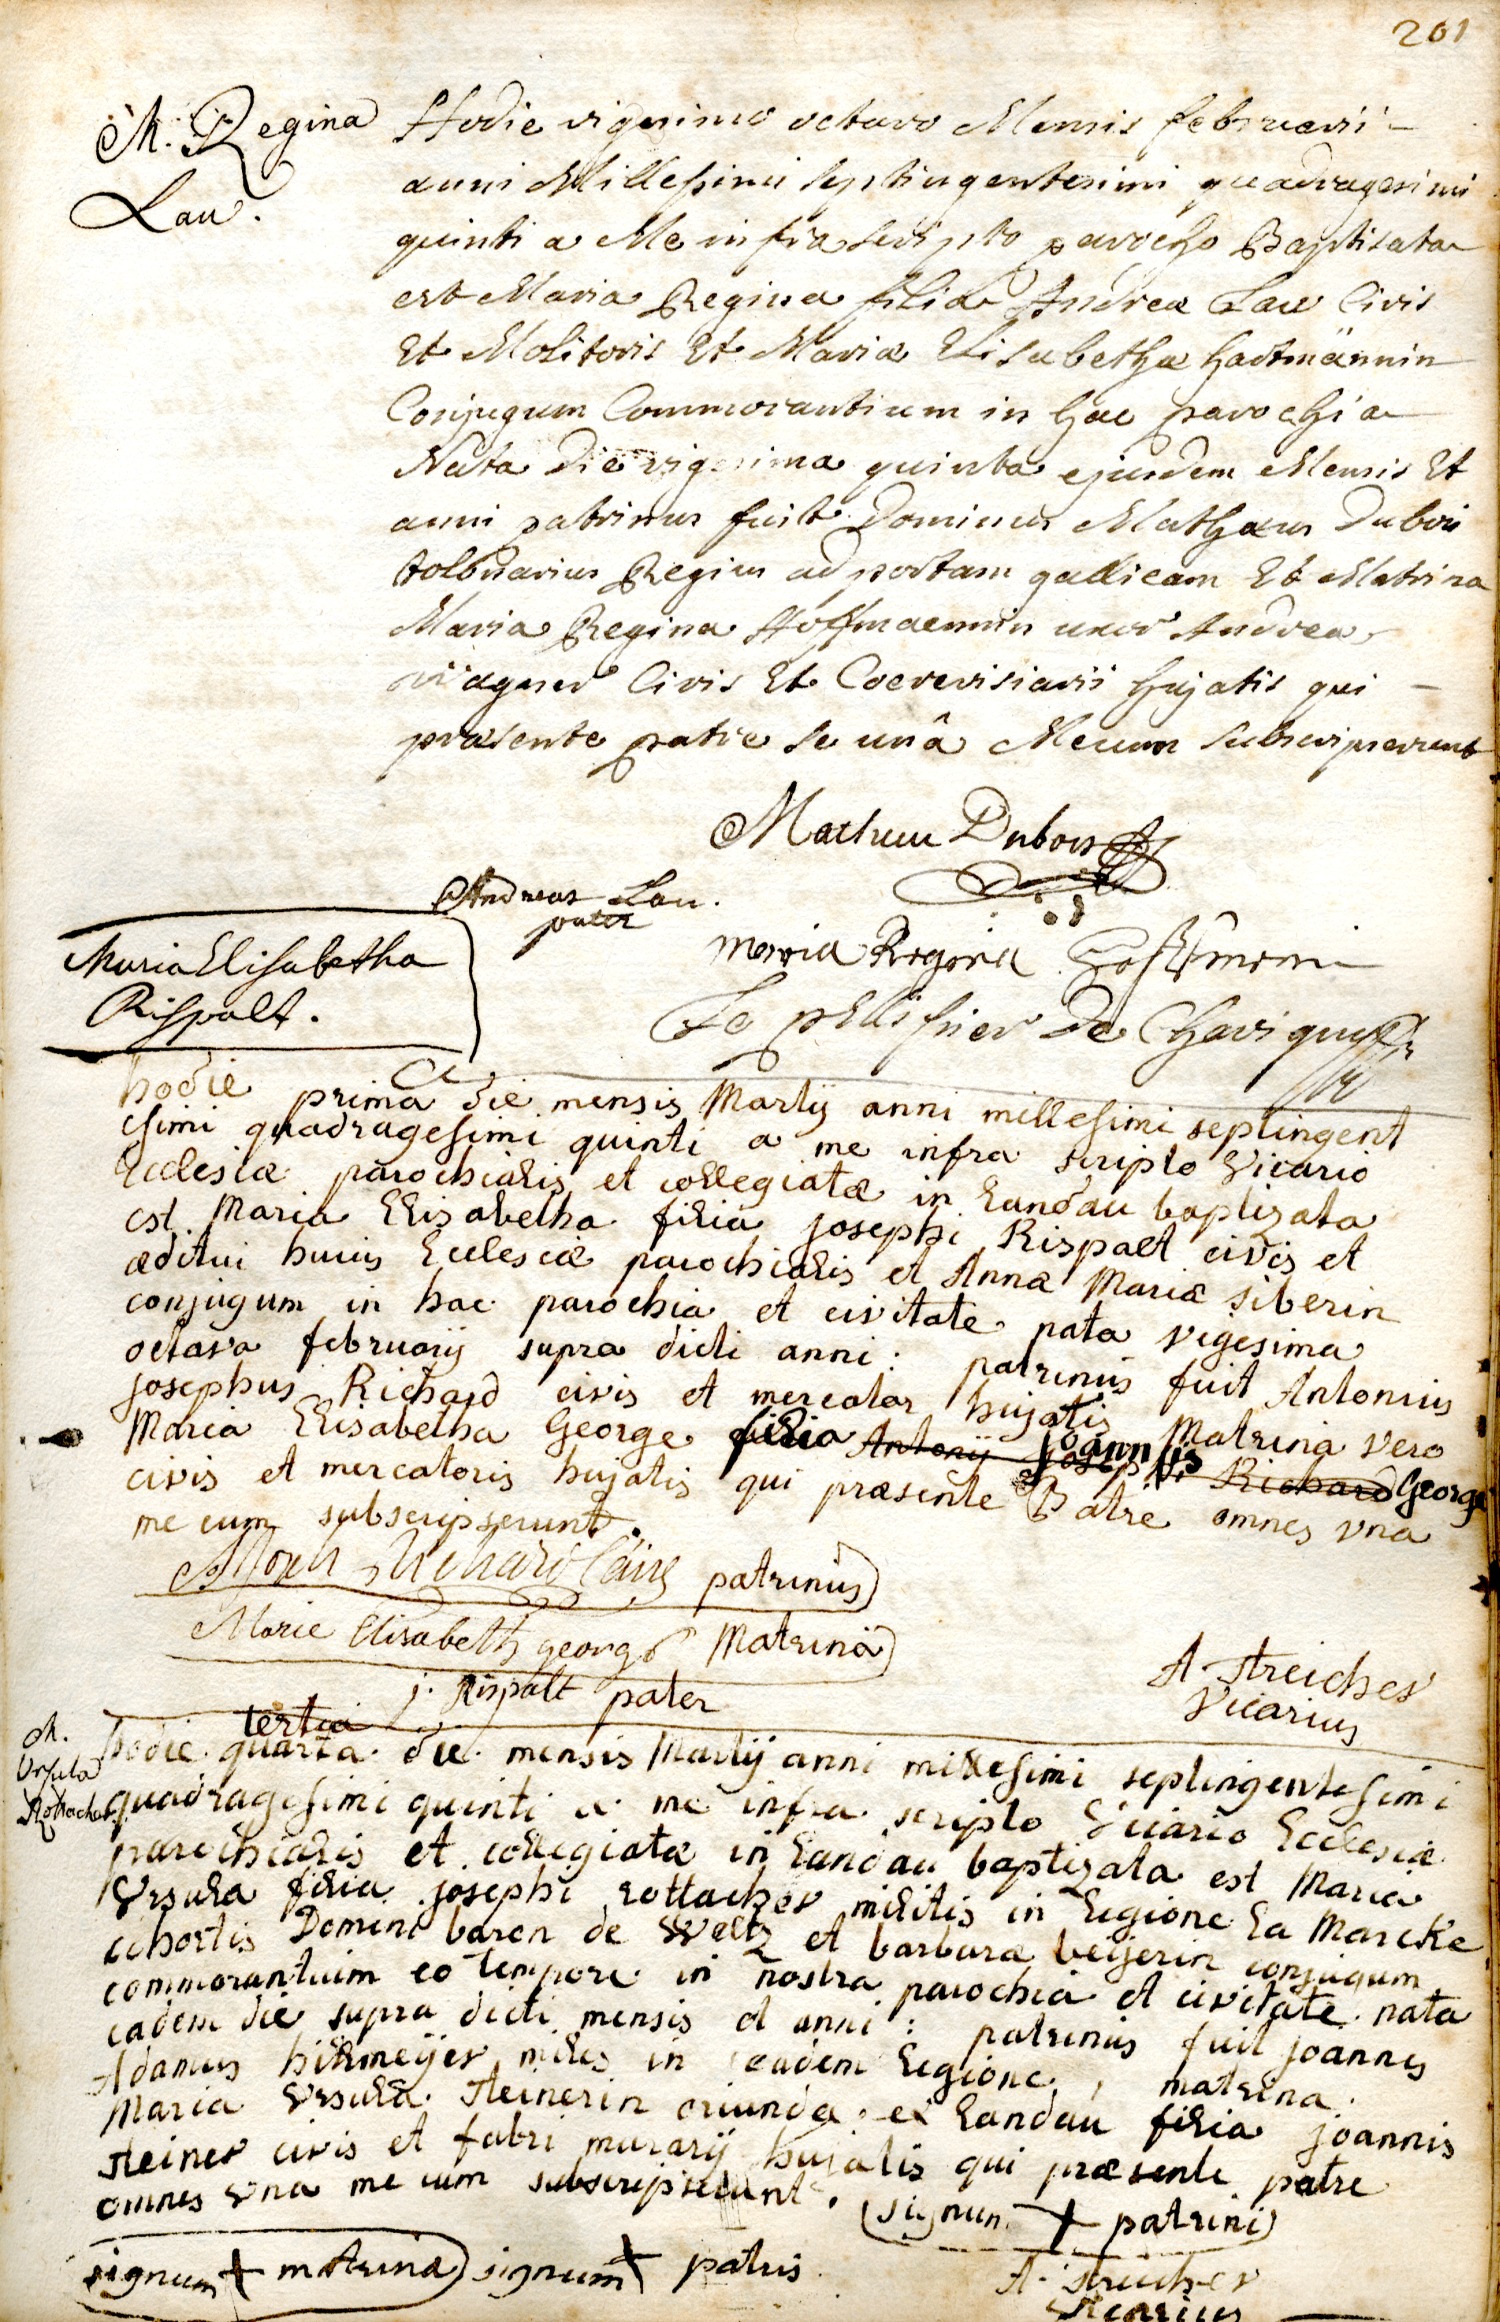 201
M. Regina
Lau.
Hodie vigesimo octavo Mensis februarii
anni Millesimi septingentesimi quadragesimi
quinti a Me infra scripto parocho Baptisata
est Maria Regina filia Andreæ Lau Civis
Et Molitoris Et Mariæ Elisabethæ hartmännin
Conjugum Commorantium in hac parochia
Nata Die vigesima quinta ejusdem Mensis Et
anni patrinus fuit Dominus Mathæus Dubois
Regius ad portam gallicam Et Matrina
Maria Regina Hoffmaennin uxor Andreæ
wagner Civis Et Coerevisiarii hujatis qui
præsente patre se unâ Mecum subscripserunt
Mathieu Dubois
Andreas Lau.
pater
Maria Regina
Le pellissier De Chavigny
Maria Elisabetha
Rispalt.
hodie prima die mensis Martij anni millesimi septingent
esimi quadragesimi quinti a me infra scripto Vicario
Ecclesiæ parochialis et collegiatæ in Landau baptizata
est Maria Elisabetha filia josephi Rispalt civis et
æditui huius Ecclesiæ parochialis et Annæ Mariæ siberin
conjugum in hac parochia et civitate nata vigesima
octava februarij supra dicti anni: patrinus fuit Antonius
josephus Richard civis et mercator hujatis Matrina vero
Maria Elisabetha George filia Antonij josephi joannis Richard George
civis et mercatoris hujatis qui præsente Patre omnes vna
me cum subscripserunt.
Richard patrinus
Marie Elisabeth george Matrina
j. Rispalt pater
A. Streicher
Vicarius
M.
Ursula
Rottacher
tertia
hodie quarta die mensis Martij anni millesimi septingentesimi
quadragesimi quinti a me infra scripto Vicario Ecclesiæ
parochialis et collegiatæ in Landau baptizata est Maria
Vrsula filia josephi rottacher militis in Legione La Marcke
cohortis Domini baron de Weltz et barbaræ beijerin conjugum
commorantium eo tempore in nostra parochia et civitate nata
eadem die supra dicti mensis et anni: patrinus fuit joannes
Adamus hillmeijer miles in eadem Legione, matrina
Maria Vrsula steinerin oriunda ex Landau filia joannis
steiner civis et fabri murarij hujatis qui præsente patre
omnes vna me cum subscripserunt.
signum + patrini
signum + matrinæ signum + patris
A. Streicher
Vicarius